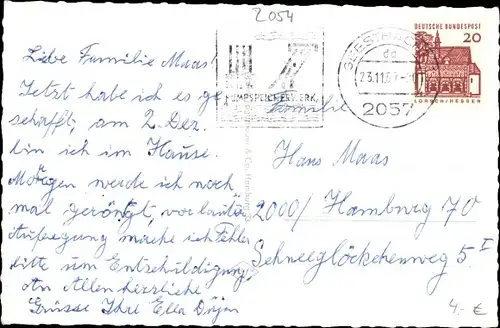 2054
Liebe Familie Maas!
Jetzt habe ich es ge-
schafft, am 2. Dez.
bin ich im Hause.
Morgen werde ich noch
mal geröngt, vor lauter
Aufregung mache ich Fehler
bitte um Entschuldigung
An Allen herzliche
Grüsse Ihre Ella
PUMPSPEICHERWERK
GEESTHACHT
dd
23.11.6
2057
DEUTSCHE BUNDESPOST
20
LORSCH/HESSEN
Familie
Hans Maas
2000/ Hamburg 70
Schneeglöckchenweg 5 I
& Co. Hamburg
4.- €